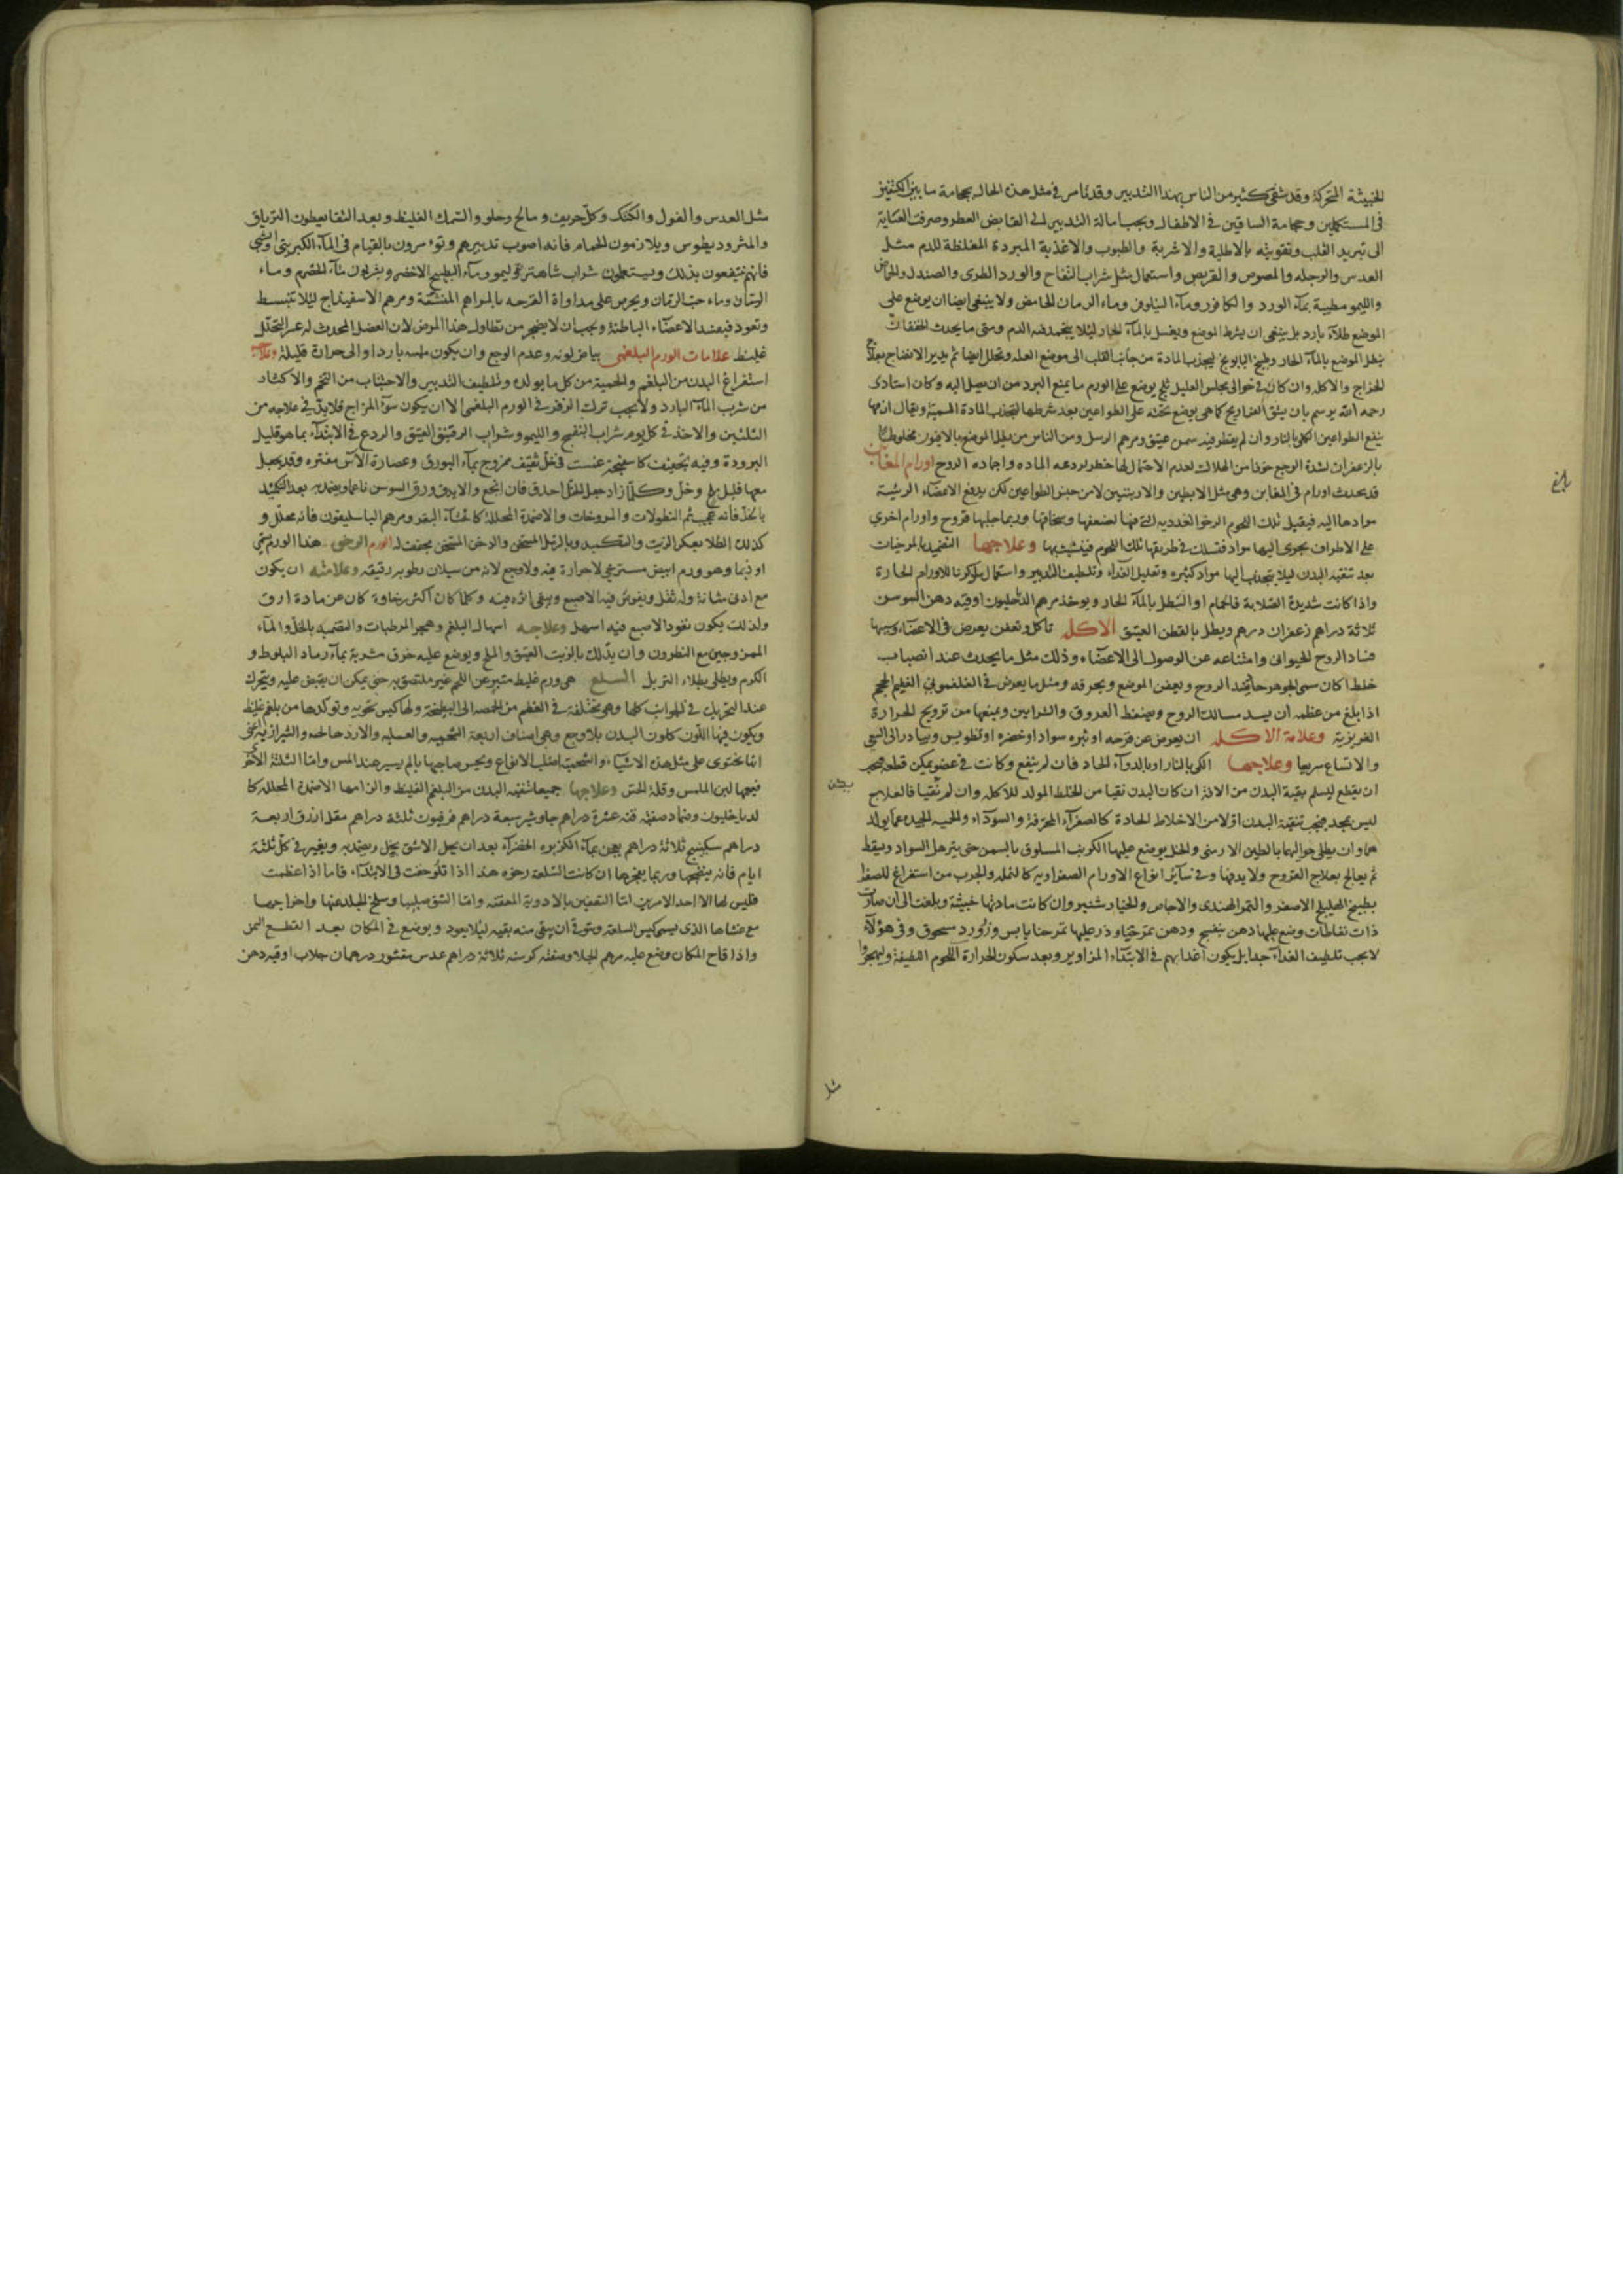 الخبيثة المتحركة وقد شفى كثير من الناس بهذا التدبير وقد نأمر فى مثل هذه الحال بحجامة ما بين الكتفين
فى المستكملين وحجامة الساقين فى الاطفال ويجب امالة التدبير الى القابض العطر وصرفت العناية
الى تبريد القلب وتقويته بالاطلية والاشربة والطيوب والاغذية المبردة المغلظة للدم مثل
العدس والرجله والمصوص والقريص واستعمال مثل شراب التفاح والورد الطرى والصندل والحماض
والليمو مطيبة بمآء الورد والكافور ومآء النيلوفر وماء الرمان الحامض ولا ينبغى ايضا ان يوضع على
الموضع طلاء بارد بل ينبغى ان يشرط الموضع ويغسل بالمآء الحار ليلا يتجمد فيه الدم ومتى ما يحدث الخفقان
ينطل الموضع بالمآء الحار وطبيخ البابونج ليجذب المادة من جانب القلب الى موضع العله وتحلل ايضا ثم يدبر الانضاج بعلاج
الخراج والاكله وان كان فى حوالى مجلس العليل ثلج يوضع على الورم ما يمنع البرد من ان يصل اليه وكان استادى
رحمه الله يرسم بان يشق الفراريج كما هى يوضع سخنه على الطواعين بعد شرطها لتجذب المادة السمية ويقال انه مما
ينفع الطواعين الكى بالنار وان لم يقطر فيه سمن عتيق ومرهم الرسل ومن الناس من يطلى الموضع بالافيون مخلوطا
بالزعفران لشدة الوجع خوفا من الهلاك لعدم الاحتمال لها خطر لردعه الماده واجماده الروح اورام المغابن
قد يحدث اورام فى المغابن وهى مثل الابطين والاربيتين لا من جنس الطواعين لكن يدفع الاعضآء الرئيسة
موادها اليه فيقبل تلك اللحوم الرخو الغدديه التى فيها لضعفها وسخافتها وربما جلبها قروح واورام اخرى
على الاطراف يجرى اليها مواد فتسلك فى طريقها تلك اللحوم فيتشبث بها وعلاجها التضميد بالمرخيات
بعد تنقيه البدن ليلا ينجذب اليها مواد كثيره وتقليل الغذاء وتلطيف التدبير واستعمال ما ذكرنا للاورام الحارة
واذا كانت شديدة الصلابة فالحمام او التنطل بالمآء الحار ويوخذ مرهم الدياخليون اوقيه دهن السوسن
ثلاثة دراهم زعفران درهم ويطل بالقطن العتيق الاكله تاكل وتعفن يعرض فى الاعضآء وسببها
فساد الروح الحيوانى وامتناعه عن الوصول الى الاعضآء وذلك مثل ما يحدث عند انصباب
خلط اكان سمى الجوهر حاد يفسد الروح ويعفن الموضع ويحرقه ومثل ما يعرض فى الفلغمونى العظيم الحجم
اذا بلغ من عظمه ان يسد مسالك الروح ويضغط العروق والشرايين ويمنعها من ترويح الحرارة
الغريزية وعلامة الاكله ان يعرض عن قرحه او بثره سواد او خضره او تطويس ويبادر الى السعى
والاتساع سريعا وعلاجها الكى بالنار او بالدوآء الحاد فان لم ينفع وكانت فى عضو يمكن قطعه فيجب
ان يقطع ليسلم بقية البدن من الافة ان كان البدن نقيا من الخلط المولد للاكله وان لم نقيا فالعلاج
ليس بمجد فيجب تنقية البدن اولا من الاخلاط الحادة كالصفرآء المحرقة والسودآء والحميه الجيده عما يولد
هما وان يطلى حواليها بالطين الارمنى والخل يوضع عليها الكرنب المسلوق بالسمن حتى يترهل السواد ويسقط
ثم يعالج بعلاج القروح ولا يدفنها وفى سآئر انواع الاورام الصفراويه كالنمله والجرب من استفراغ للصفرا
بطبيخ الهليلج الاصفر والتمر الهندى والاجاص والخيار شنبر وان كانت مادتها خبيثة وبلغت الى ان صارت
ذات نفاطات وضع عليها دهن بنفسج ودهن وذر عليها تمر حنا يابس وزرورد مسحوق وفى هؤلآء
لا يجب تلطيف الغذآء جدا بل يكون اغذايهم فى الابتدآء المزاوير وبعد سكون الحرارة اللحوم اللطيفة وليهجروا
بلغ
يكن
مثل
مثل العدس والفول والكشك وكل حريف ومالح وحلو والسمك الغليظ وبعد النقا يعطون الترياق
والمثروديطوس ويلازمون الحمام فانه اصوب تدبيرهم وتوءمرون بالقيام فى المآء الكبريتى والشبى
فانهم ينتفعون بذلك ويستعملون شراب شاهترج وليمو ومآء البطيخ الاخضر ويشربون مآء الحصرم وماء
الريباس وماء حب الرمان ويحرص على مداواة القرحه بالمراهم المنشفة ومرهم الاسفيداج ليلا تنبسط
وتعود فيفسد الاعضآء الباطنة ويجب ان لا يضجر من تطاول هذا المرض لان الفضل المحدث له عسر التحلل
غليظ علامات الورم البلغمى بياض لونه وعدم الوجع وان يكون ملمسه باردا والى حرارة قليلة وعلاجه
استفراغ البدن من البلغم والحمية من كل ما يولده وتلطيف التدبير والاجتناب من التخم والاكثار
من شرب المآء البارد ولا يجب ترك الزفر فى الورم البلغمى الا ان يكون سوء المزاج فلا بد فى علاجه من
التلئين والاخذ فى كل يوم شراب البنفسج والليمو وشراب الرقيق العتيق والردع فى الابتدآء بما هو قليل
البرودة وفيه تجفيف كاسفنجة غمست فى خل ثقيف ممزوج بمآء البورق وعصارة الآس مفتره وقد يجعل
معها قليل ملح وخل وكلما زاد جعل الخل احدق فان انجع والا يدق ورق السوسن ناعما ويضمد به بعد التكميد
بالخل فانه عجيب ثم النطولات والمروخات والاضمدة المحللة كاخثآء البقر ومرهم الباسليقون فانه محلل و
كذلك الطلا بعكر الزيت والتكميد وبالرمل المسخن والدخن المسخن مجفف له الورم الرخو هذا الورم يسمى
اوذيما وهو ورم ابيض مسترخى لا حرارة فيه ولا وجع لانه من سيلان رطوبه رقيقه وعلامته ان يكون
مع ادنى مثانة وله ثقل ويغوص فيه الاصبع ويبقى اثره فيه وكلما كان اكثر رخاوة كان عن مادة ارق
ولذلك يكون نفوذ الاصبع فيه اسهل وعلاجه اسهال البلغم وهجر المرطبات والتضميد بالخل والمآء
الممزوجين مع النطرون وان يدلك بالزيت العتيق والملح ويوضع عليه خرق مشربة بمآء رماد البلوط و
الكرم ويطلى بطلاء التربل السلع هى ورم غليظ متبر عن اللحم غير ملتصق به حتى يمكن ان يقبض عليه ويتحرك
عند التحريك فى الجوانب كلها وهو مختلفة فى العظم من الحمصه الى البطيخة ولها كيس تحويه وتولدها من بلغم غليظ
ويكون فيها اللون كلون البدن بلا وجع وهى اصناف اربعة الشحميه والعسليه والاردهالجه والشيرازيه اعنى
انها تحتوى على مثل هذه الاشيآء والشحمية اصلب الانواع ويحس صاحبها بالم يسير عند المس واما الثلثة الاخر
فيعمها لين الملمس وقلة الحس وعلاجها جميعا تنقيه البدن من البلغم الغليظ والزامها الاضمدة المحلله كا
لدياخليون وضماد صفته قنه عشرة دراهم جاوشير سبعة دراهم فرفيون ثلثة دراهم مقل ازرق اربعة
دراهم سكبينج ثلاثة دراهم يعجن بمآء الكزبره الخضرآء بعد ان يحل الاشق بخل ويضمد به ويغير فى كل ثلثة
ايام فانه ينضجها وربما يفجرها ان كانت السلعة رخوه هذا اذا تلوحقت فى الابتدآء فاما اذا عظمت
فليس لها الا احد الامرين اما التعفين بالادوية المعفنه واما الشق صليبا وسلخ الجلد عنها واخراجها
مع غشاها الذى يسمى كيس السلعه ويتوقى ان يبقى منه بقيه ليلا يعود ويوضع فى المكان بعد القطع السمن
واذا قاح المكان وضع عليه مرهم الجلا وصفته كرسنه ثلاثة دراهم عدس مقشور درهمان جلاب اوقيه دهن